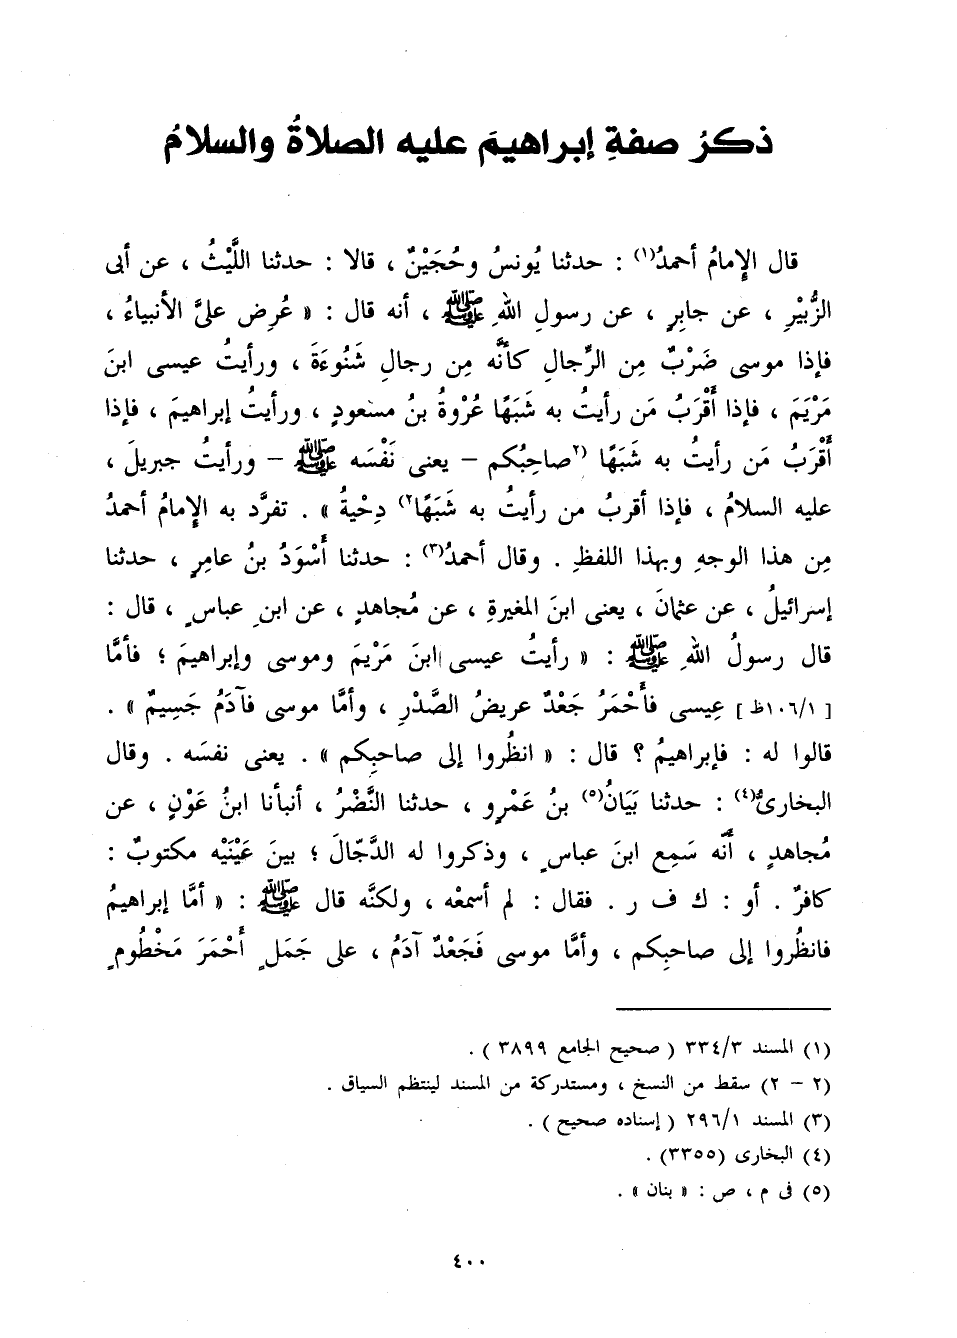 ذكرُ صفةِ إبراهيمَ عليه الصلاةُ والسلامُ
قال الإمامُ أحمدُ(١) : حدثنا يُونسُ وحُجَيْنٌ ، قالا : حدثنا اللَّيْثُ ، عن أبى
الزُّبَيْرِ ، عن جابرٍ ، عن رسولِ اللهِ ﷺ ، أنه قال : « عُرِض علىَّ الأنبياءُ ،
فإذا موسى ضَرْبٌ مِن الرِّجالِ كأنَّه مِن رجالِ شَنُوءَةَ ، ورأيتُ عيسى ابنَ
مَرْيَمَ ، فإذا أَقْرَبُ مَن رأيتُ به شَبَهًا عُرْوةُ بنُ مسعودٍ ، ورأيتُ إبراهيمَ ، فإذا
أَقْرَبُ مَن رأيتُ به شَبَهًا (٢صاحِبُكم – يعنى نَفْسَه ﷺ – ورأيتُ جبريلَ ،
عليه السلامُ ، فإذا أقربُ من رأيتُ به شَبَهًا٢) دِحْيةُ » . تفرَّد به الإمامُ أحمدُ
مِن هذا الوجهِ وبهذا اللفظِ . وقال أحمدُ(٣) : حدثنا أَسْوَدُ بنُ عامرٍ ، حدثنا
إسرائيلُ ، عن عثمانَ ، يعنى ابنَ المغيرةِ ، عن مُجاهدٍ ، عن ابنِ عباسٍ ، قال :
قال رسولُ اللهِ ﷺ : « رأيتُ عيسى ابنَ مَرْيمَ وموسى وإبراهيمَ ؛ فأمَّا
[ ١٠٦/١ظ ] عِيسى فأَحْمَرُ جَعْدٌ عريضُ الصَّدْرِ ، وأمَّا موسى فآدَمُ جَسِيمٌ » .
قالوا له : فإبراهيمُ ؟ قال : « انظُروا إلى صاحبِكم » . يعنى نفسَه . وقال
البخارىُّ(٤) : حدثنا بَيَانُ(٥) بنُ عَمْرٍو ، حدثنا النَّضْرُ ، أنبأنا ابنُ عَوْنٍ ، عن
مُجاهدٍ ، أنَّه سَمِع ابنَ عباسٍ ، وذكروا له الدَّجّالَ ؛ بينَ عَيْنَيْه مكتوبٌ :
كافرٌ . أو : ك ف ر . فقال : لم أسمعْه ، ولكنَّه قال ﷺ : « أمَّا إبراهيمُ
فانظُروا إلى صاحبِكم ، وأمَّا موسى فَجَعْدٌ آدَمُ ، على جَمَلٍ أَحْمَرَ مَخْطُومٍ
(١) المسند ٣٣٤/٣ ( صحيح الجامع ٣٨٩٩ ) .
(٢ – ٢) سقط من النسخ ، ومستدركة من المسند لينتظم السياق .
(٣) المسند ٢٩٦/١ ( إسناده صحيح ) .
(٤) البخارى (٣٣٥٥) .
(٥) فى م ، ص : « بنان » .
٤٠٠